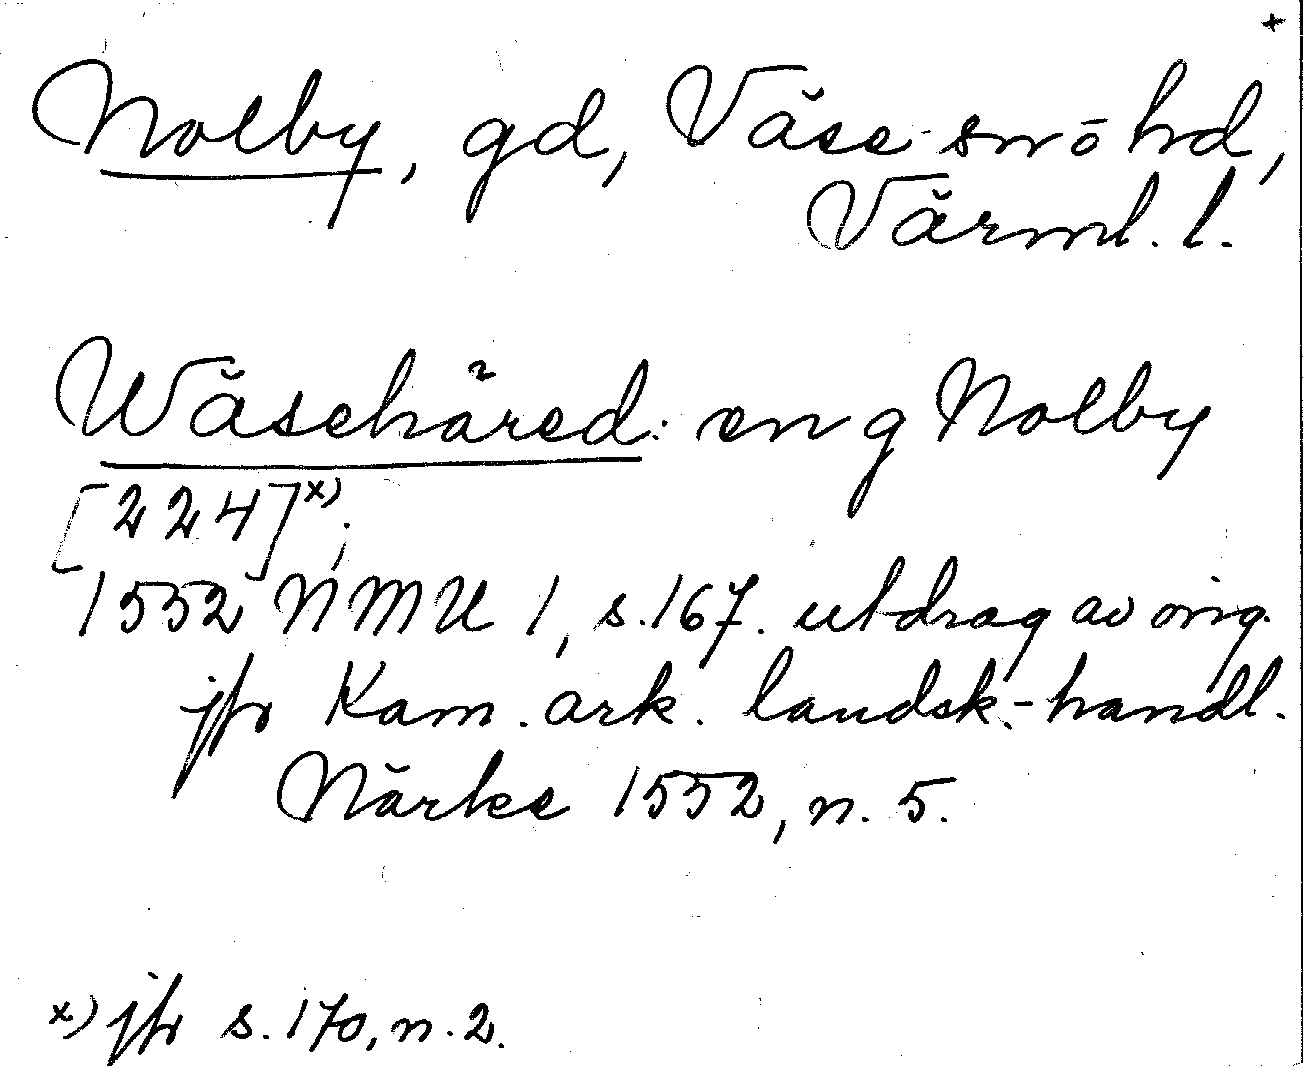 +
Nolby, gd, Väse sn o hd,
Värml. l.
Wäsehäred: en g Nolby
[224]x);
1552 NMU 1, s.167. utdrag av orig.
jfr Kam. ark. landsk.-handl.
Närke 1552, n. 5.
x) jfr s. 170, n. 2.